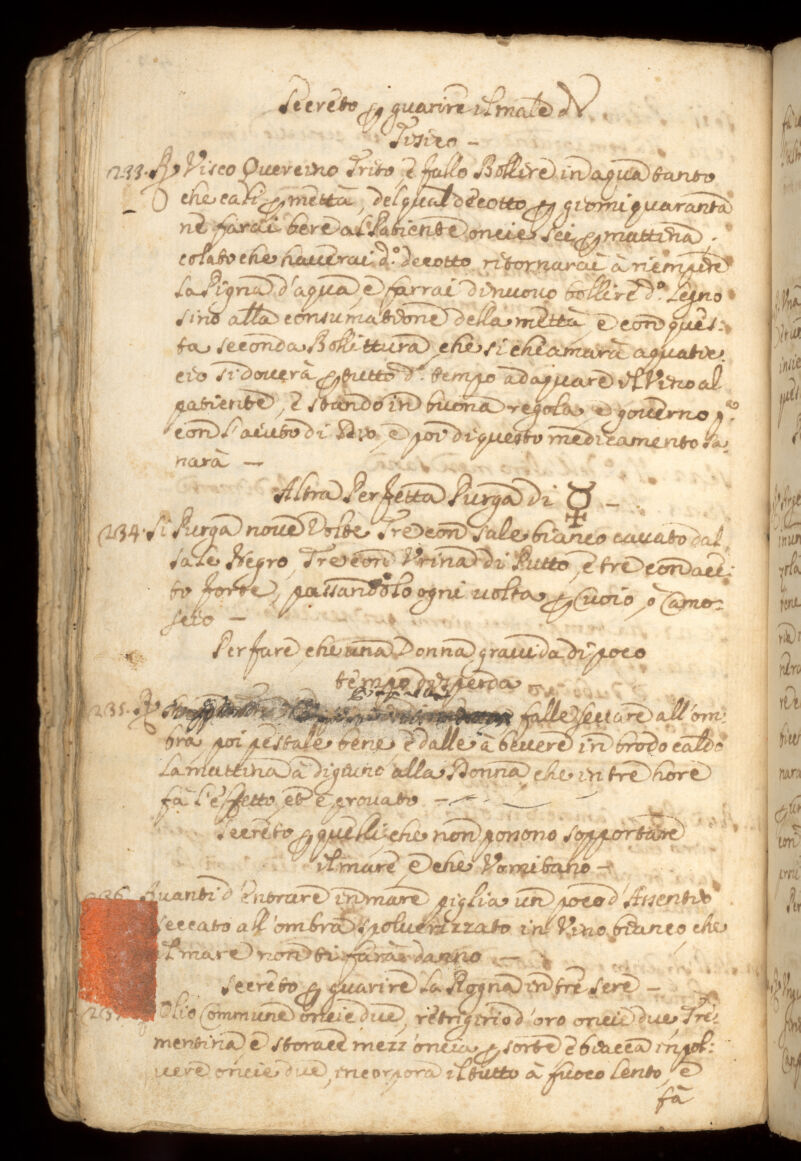 Secreto per guarire il male di
Tisico -
233. ℞ Visco Quercino Trito, e fallo Bollire in aqua tanto
che cali per mettà, del qual decotto per giorni quaranta
ne farai bere al Patiente oncie sei per mattina;
colato che haverai d.º decotto ritornarai à riempire
la Pigna d'aqua, e farrai di nuovo bollire d.º Legno
sino alla consumatione della mettà e con ques:
ta seconda Bollittura che si chiamarà
si doverà per tutto d.º tempo adaquare il Vino al
patiente, e stando in buona regola, e governo
con l'aiuto di Dio, e poi di questo medicamento sa:
narà -
Altra Perfetta Purga di ☿ -
234. Si Purga nove Volte Tre con sale bianco cavato dal
sale Negro, Tre con Urina di Putto, e tre con ace:
to forte, passandolo ogni volta per Cuoio, ò Camo:
scio -
Per fare che una Donna gravida di poco
tempo disperda
235. ℞ falle seccare all'om:
bra poi pestale bene e dalle à bevere in brodo caldo
la mattina à digiuno alla Donna che in tre hore
fà l'effetto, et è provato -
Secreto per quelli che non ponono sopportare
il mare e che Vomitano -
236. Avanti d'Entrare in mare piglia un poco d'Assentio
seccato all'ombra spolverizzato in Vino bianco, che
il mare non ti farà danno -
Secreto per guarire la Rogna in tre sere -
Olio Commune oncie due, retrigirio d'oro oncie due Tre:
mentina, e storace mezz'oncia per sorte e biacca in pol:
vere oncie due, incorpora il tutto à fuoco lento, e
fà